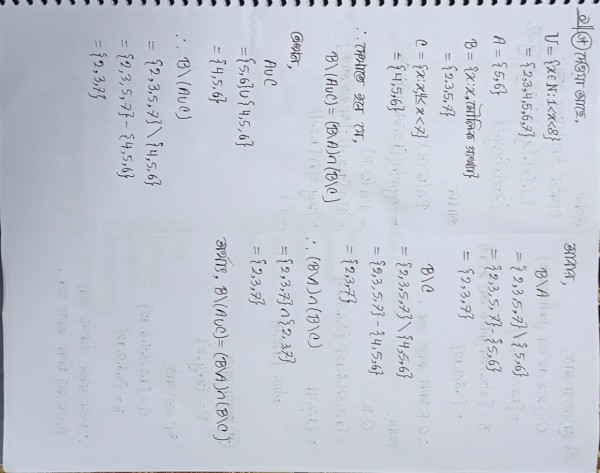 ২(গ) দেওয়া আছে,
U = {x∈N : 1<x<8}
= {2,3,4,5,6,7}
A = {5,6}
B = {x:x মৌলিক সংখ্যা}
= {2,3,5,7}
C = {x:x 4≤x<7}
= {4,5,6}
∴ দেখাতে হবে যে,
B\(A∪C) = (B\A)∩(B\C)
এখন,
A∪C
= {5,6}∪{4,5,6}
= {4,5,6}
∴ B\(A∪C)
= {2,3,5,7}\{4,5,6}
= {2,3,5,7} - {4,5,6}
= {2,3,7}
আবার,
B\A
= {2,3,5,7}\{5,6}
= {2,3,5,7} - {5,6}
= {2,3,7}
B\C
= {2,3,5,7}\{4,5,6}
= {2,3,5,7} - {4,5,6}
= {2,3,7}
∴ (B\A)∩(B\C)
= {2,3,7}∩{2,3,7}
= {2,3,7}
অর্থাৎ, B\(A∪C) = (B\A)∩(B\C)